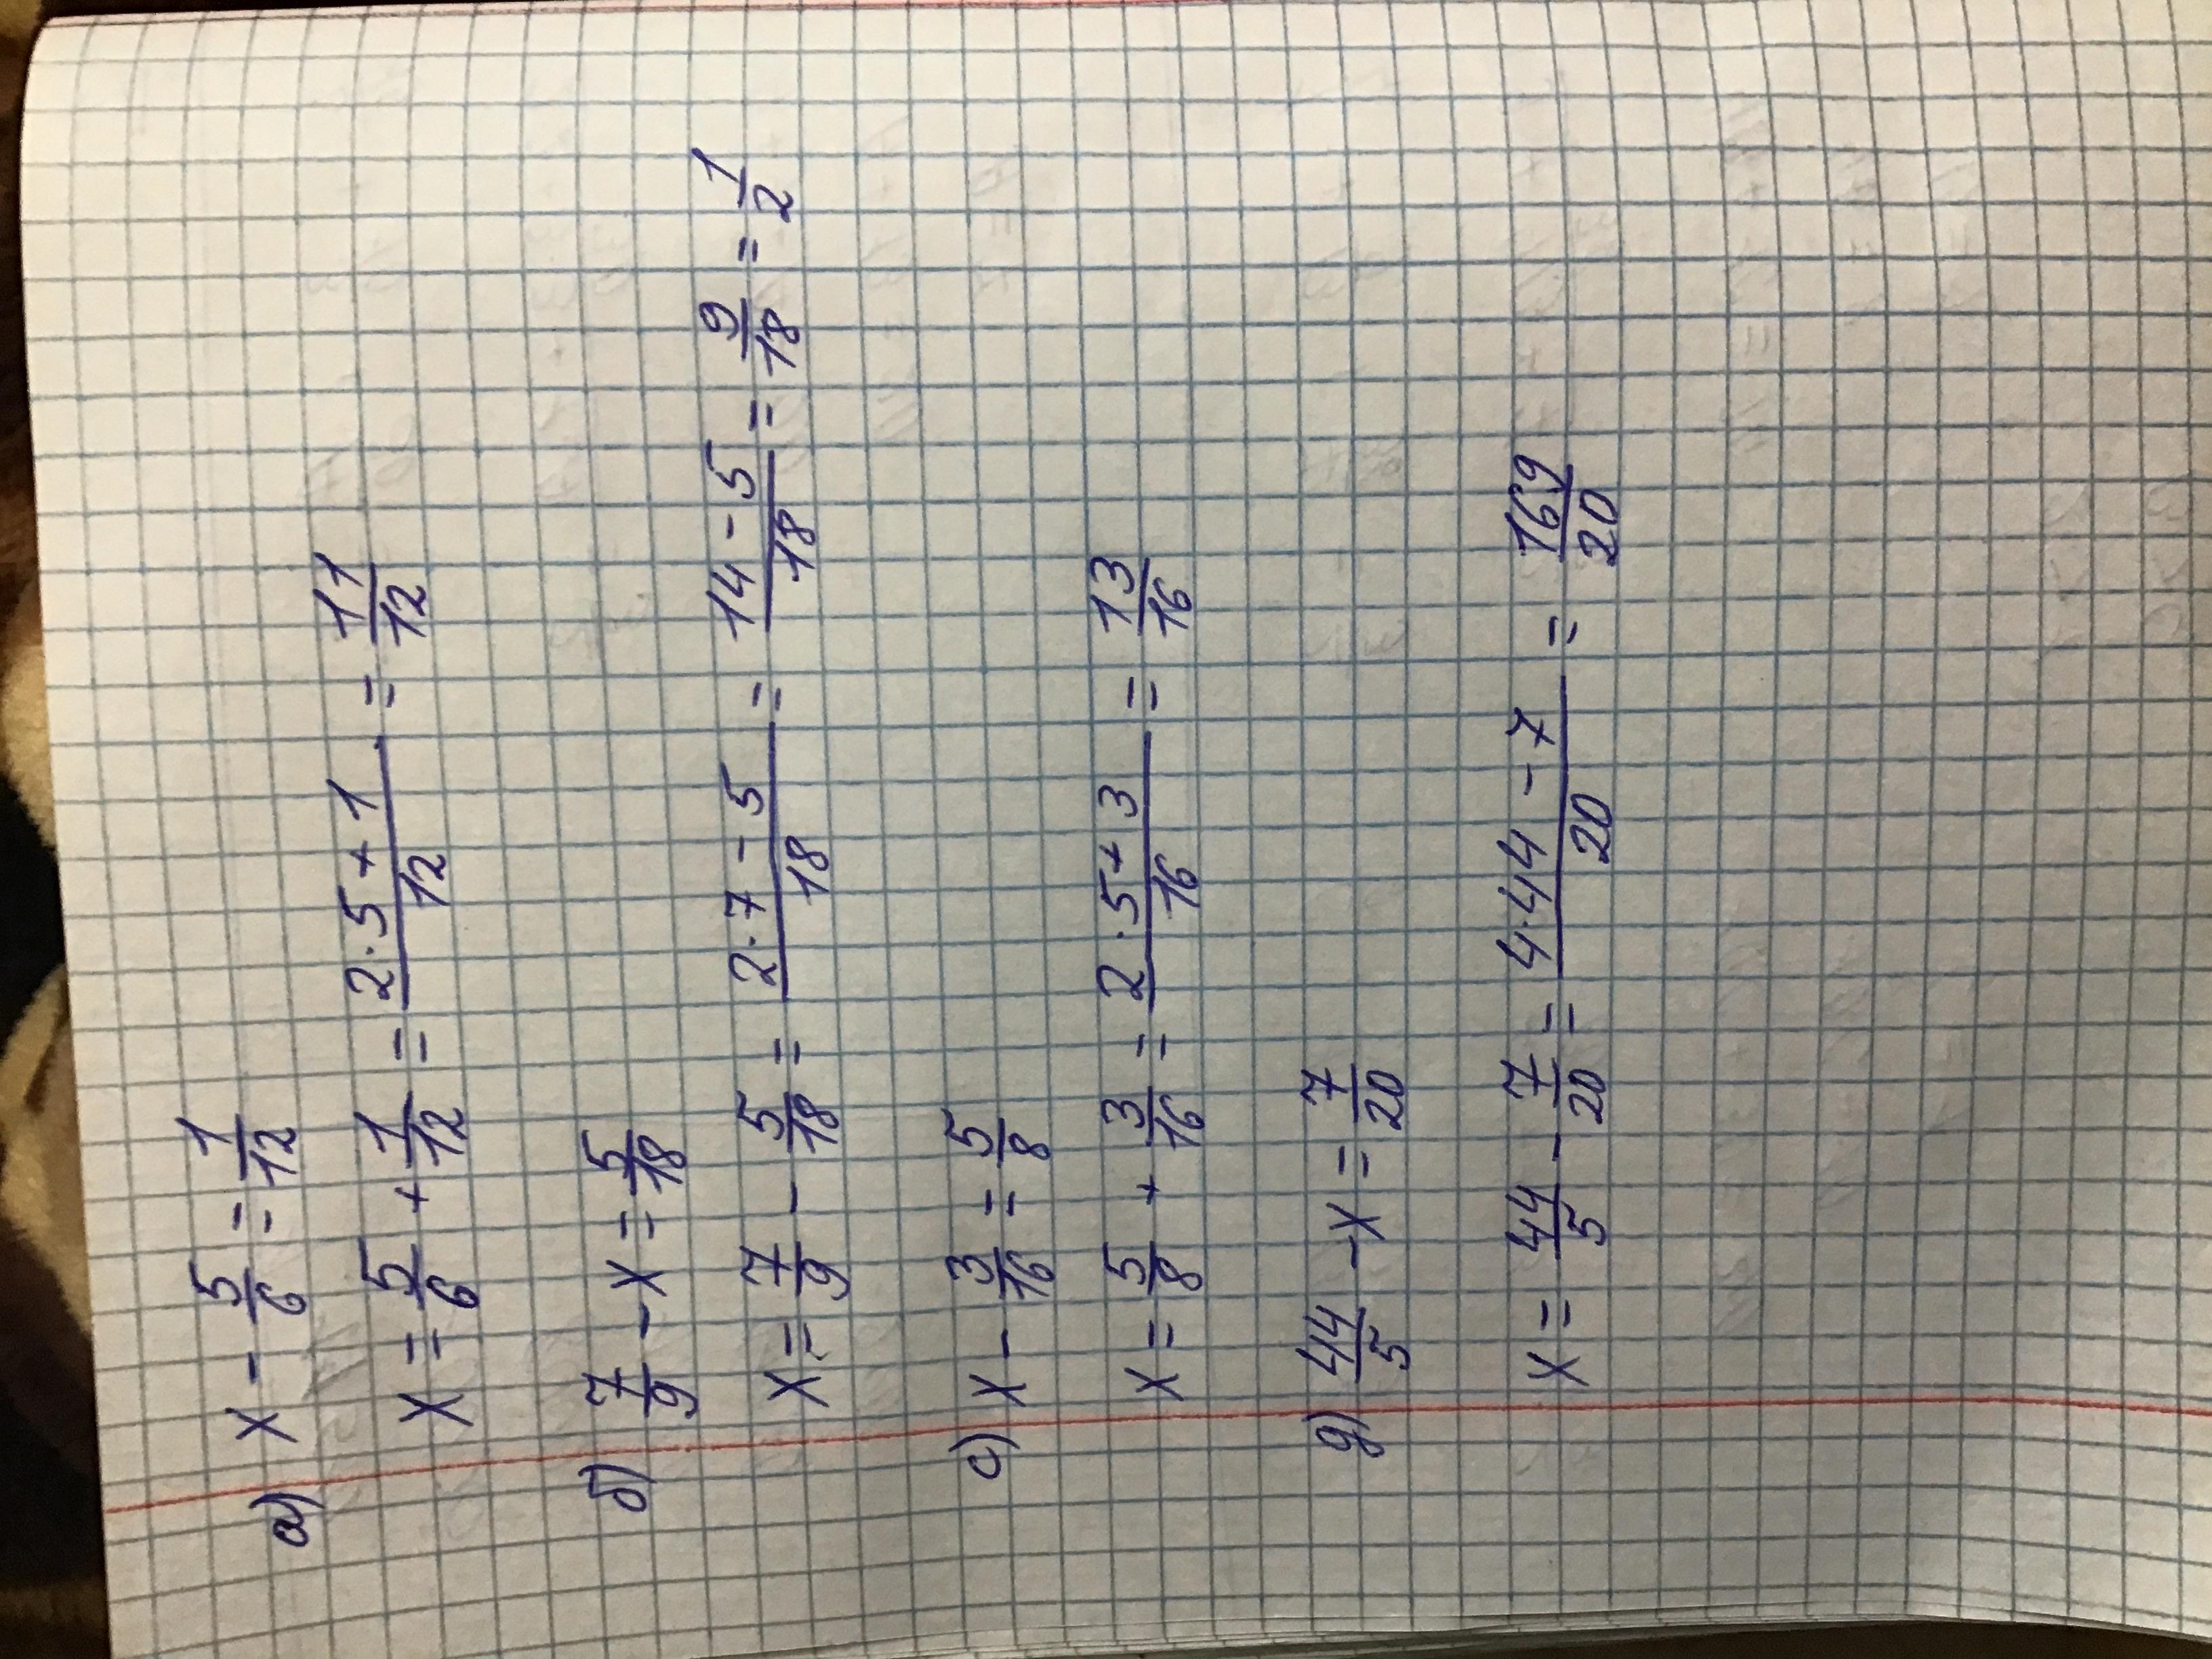 а) x - 5/6 = 1/12
x = 5/6 + 1/12 = (2·5+1)/12 = 11/12
б) 7/9 - x = 5/18
x = 7/9 - 5/18 = (2·7-5)/18 = (14-5)/18 = 9/18 = 1/2
с) x - 3/16 = 5/8
x = 5/8 + 3/16 = (2·5+3)/16 = 13/16
д) 44/5 - x = 7/20
x = 44/5 - 7/20 = (4·44-7)/20 = 169/20